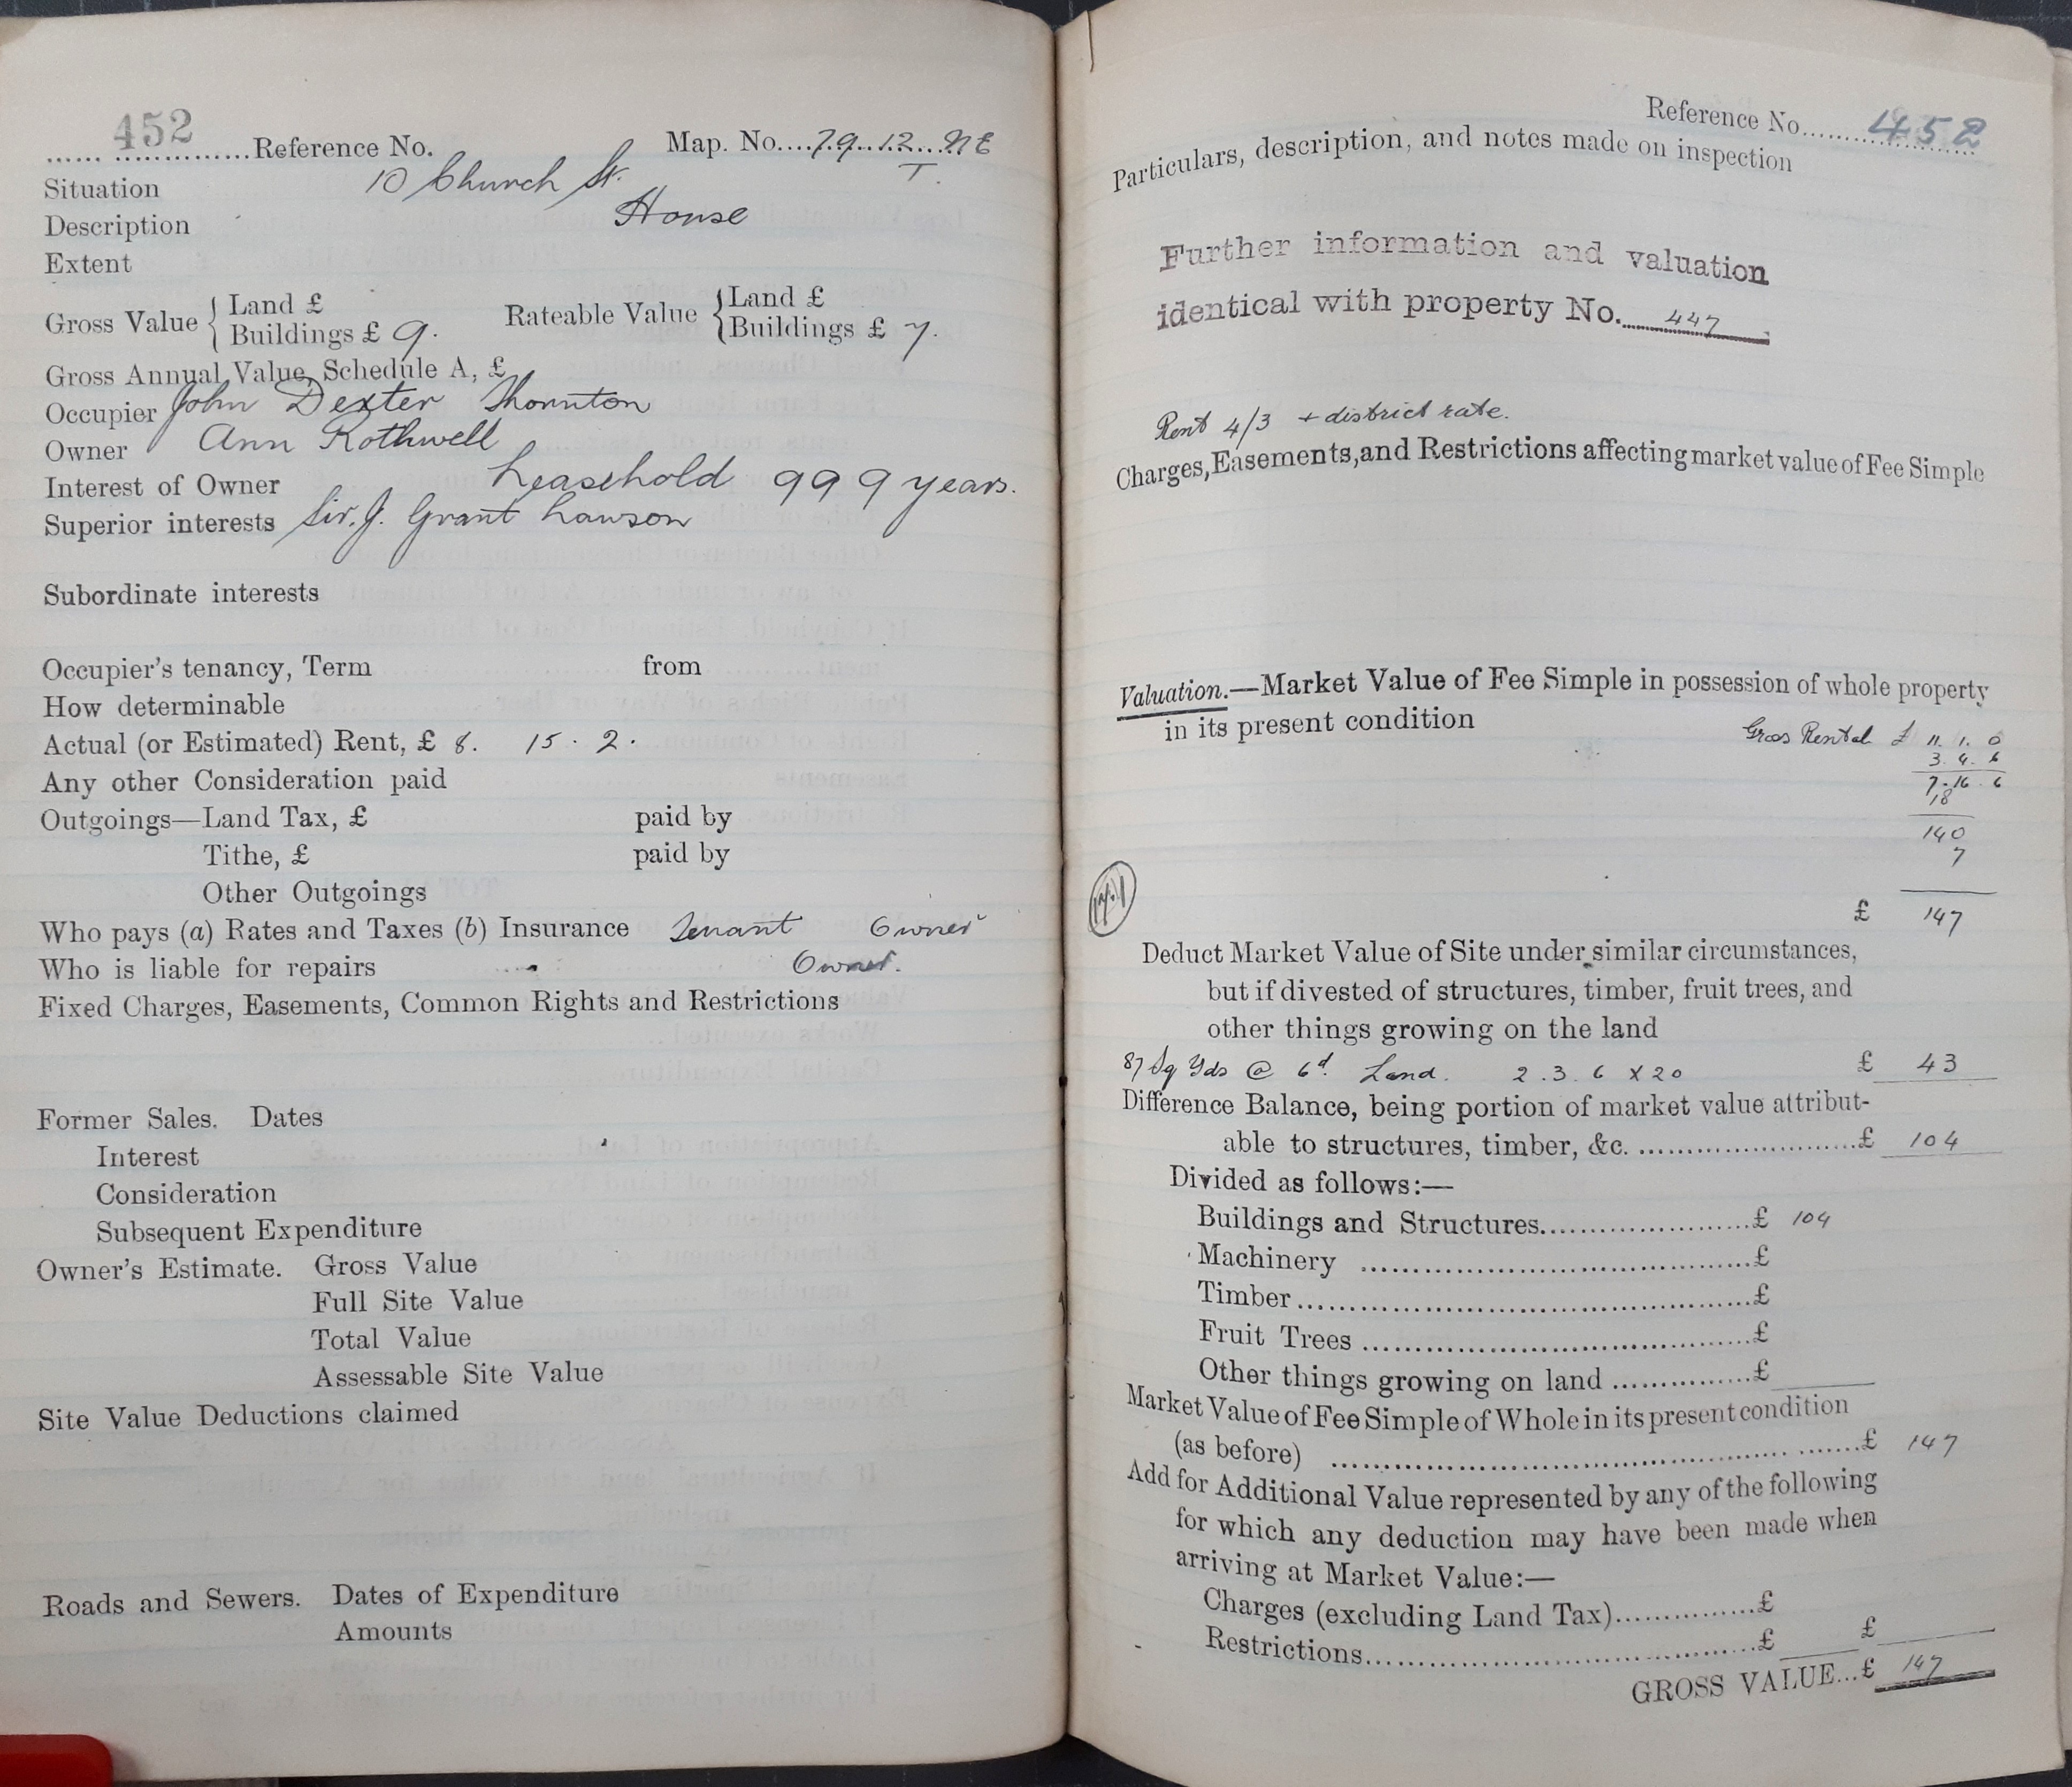 452
Reference No. Map. No. 79.12.NE
T.
Situation 10 Church St.
Description House
Extent
Gross Value { Land £ Rateable Value { Land £
Buildings £ 9. Buildings £ 7.
Gross Annual Value, Schedule A, £
Occupier John Dexter Thornton
Owner Ann Rothwell
Interest of Owner Leasehold 999 years.
Superior interests Sir. J. Grant Lawson
Subordinate interests
Occupier's tenancy, Term from
How determinable
Actual (or Estimated) Rent, £ 8. 15. 2.
Any other Consideration paid
Outgoings—Land Tax, £ paid by
Tithe, £ paid by
Other Outgoings
Who pays (a) Rates and Taxes (b) Insurance Tenant Owner
Who is liable for repairs Owner.
Fixed Charges, Easements, Common Rights and Restrictions
Former Sales. Dates
Interest
Consideration
Subsequent Expenditure
Owner's Estimate. Gross Value
Full Site Value
Total Value
Assessable Site Value
Site Value Deductions claimed
Roads and Sewers. Dates of Expenditure
Amounts
Reference No. 452
Particulars, description, and notes made on inspection
Further information and valuation
identical with property No. 447
Rent 4/3 + district rate.
Charges, Easements, and Restrictions affecting market value of Fee Simple
Valuation.—Market Value of Fee Simple in possession of whole property
in its present condition
Gross Rental £ 11. 1. 0
3. 4. 6
7. 16. 6
18
140
7
£ 147
Deduct Market Value of Site under similar circumstances,
but if divested of structures, timber, fruit trees, and
other things growing on the land
87 Sq Yds @ 6d. Land. 2.3.6 x 20 £ 43
Difference Balance, being portion of market value attribut-
able to structures, timber, &c. £ 104
Divided as follows:—
Buildings and Structures £ 104
Machinery £
Timber £
Fruit Trees £
Other things growing on land £
Market Value of Fee Simple of Whole in its present condition
(as before) £ 147
Add for Additional Value represented by any of the following
for which any deduction may have been made when
arriving at Market Value:—
Charges (excluding Land Tax) £
Restrictions £ £
GROSS VALUE...£ 147